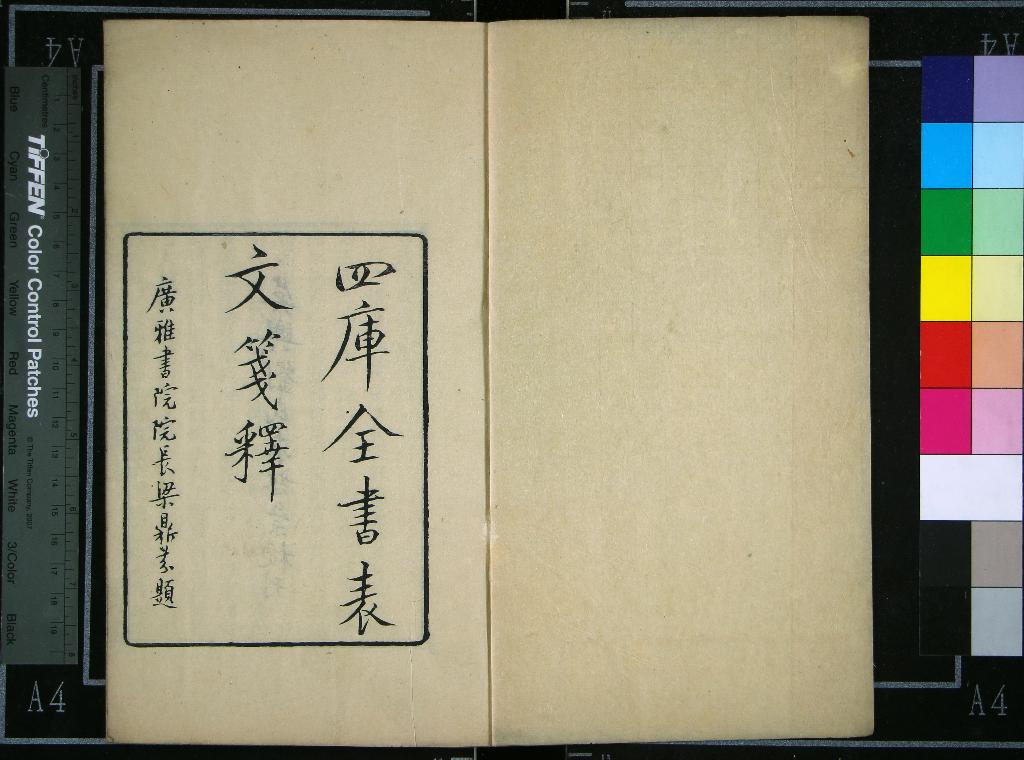 四庫全書表
文箋釋
廣雅書院院長梁鼎芬題
A4
A4
A4
A4
Centimetres
Inches
TIFFEN Color Control Patches
© The Tiffen Company, 2007
Blue Cyan Green Yellow Red Magenta White 3/Color Black